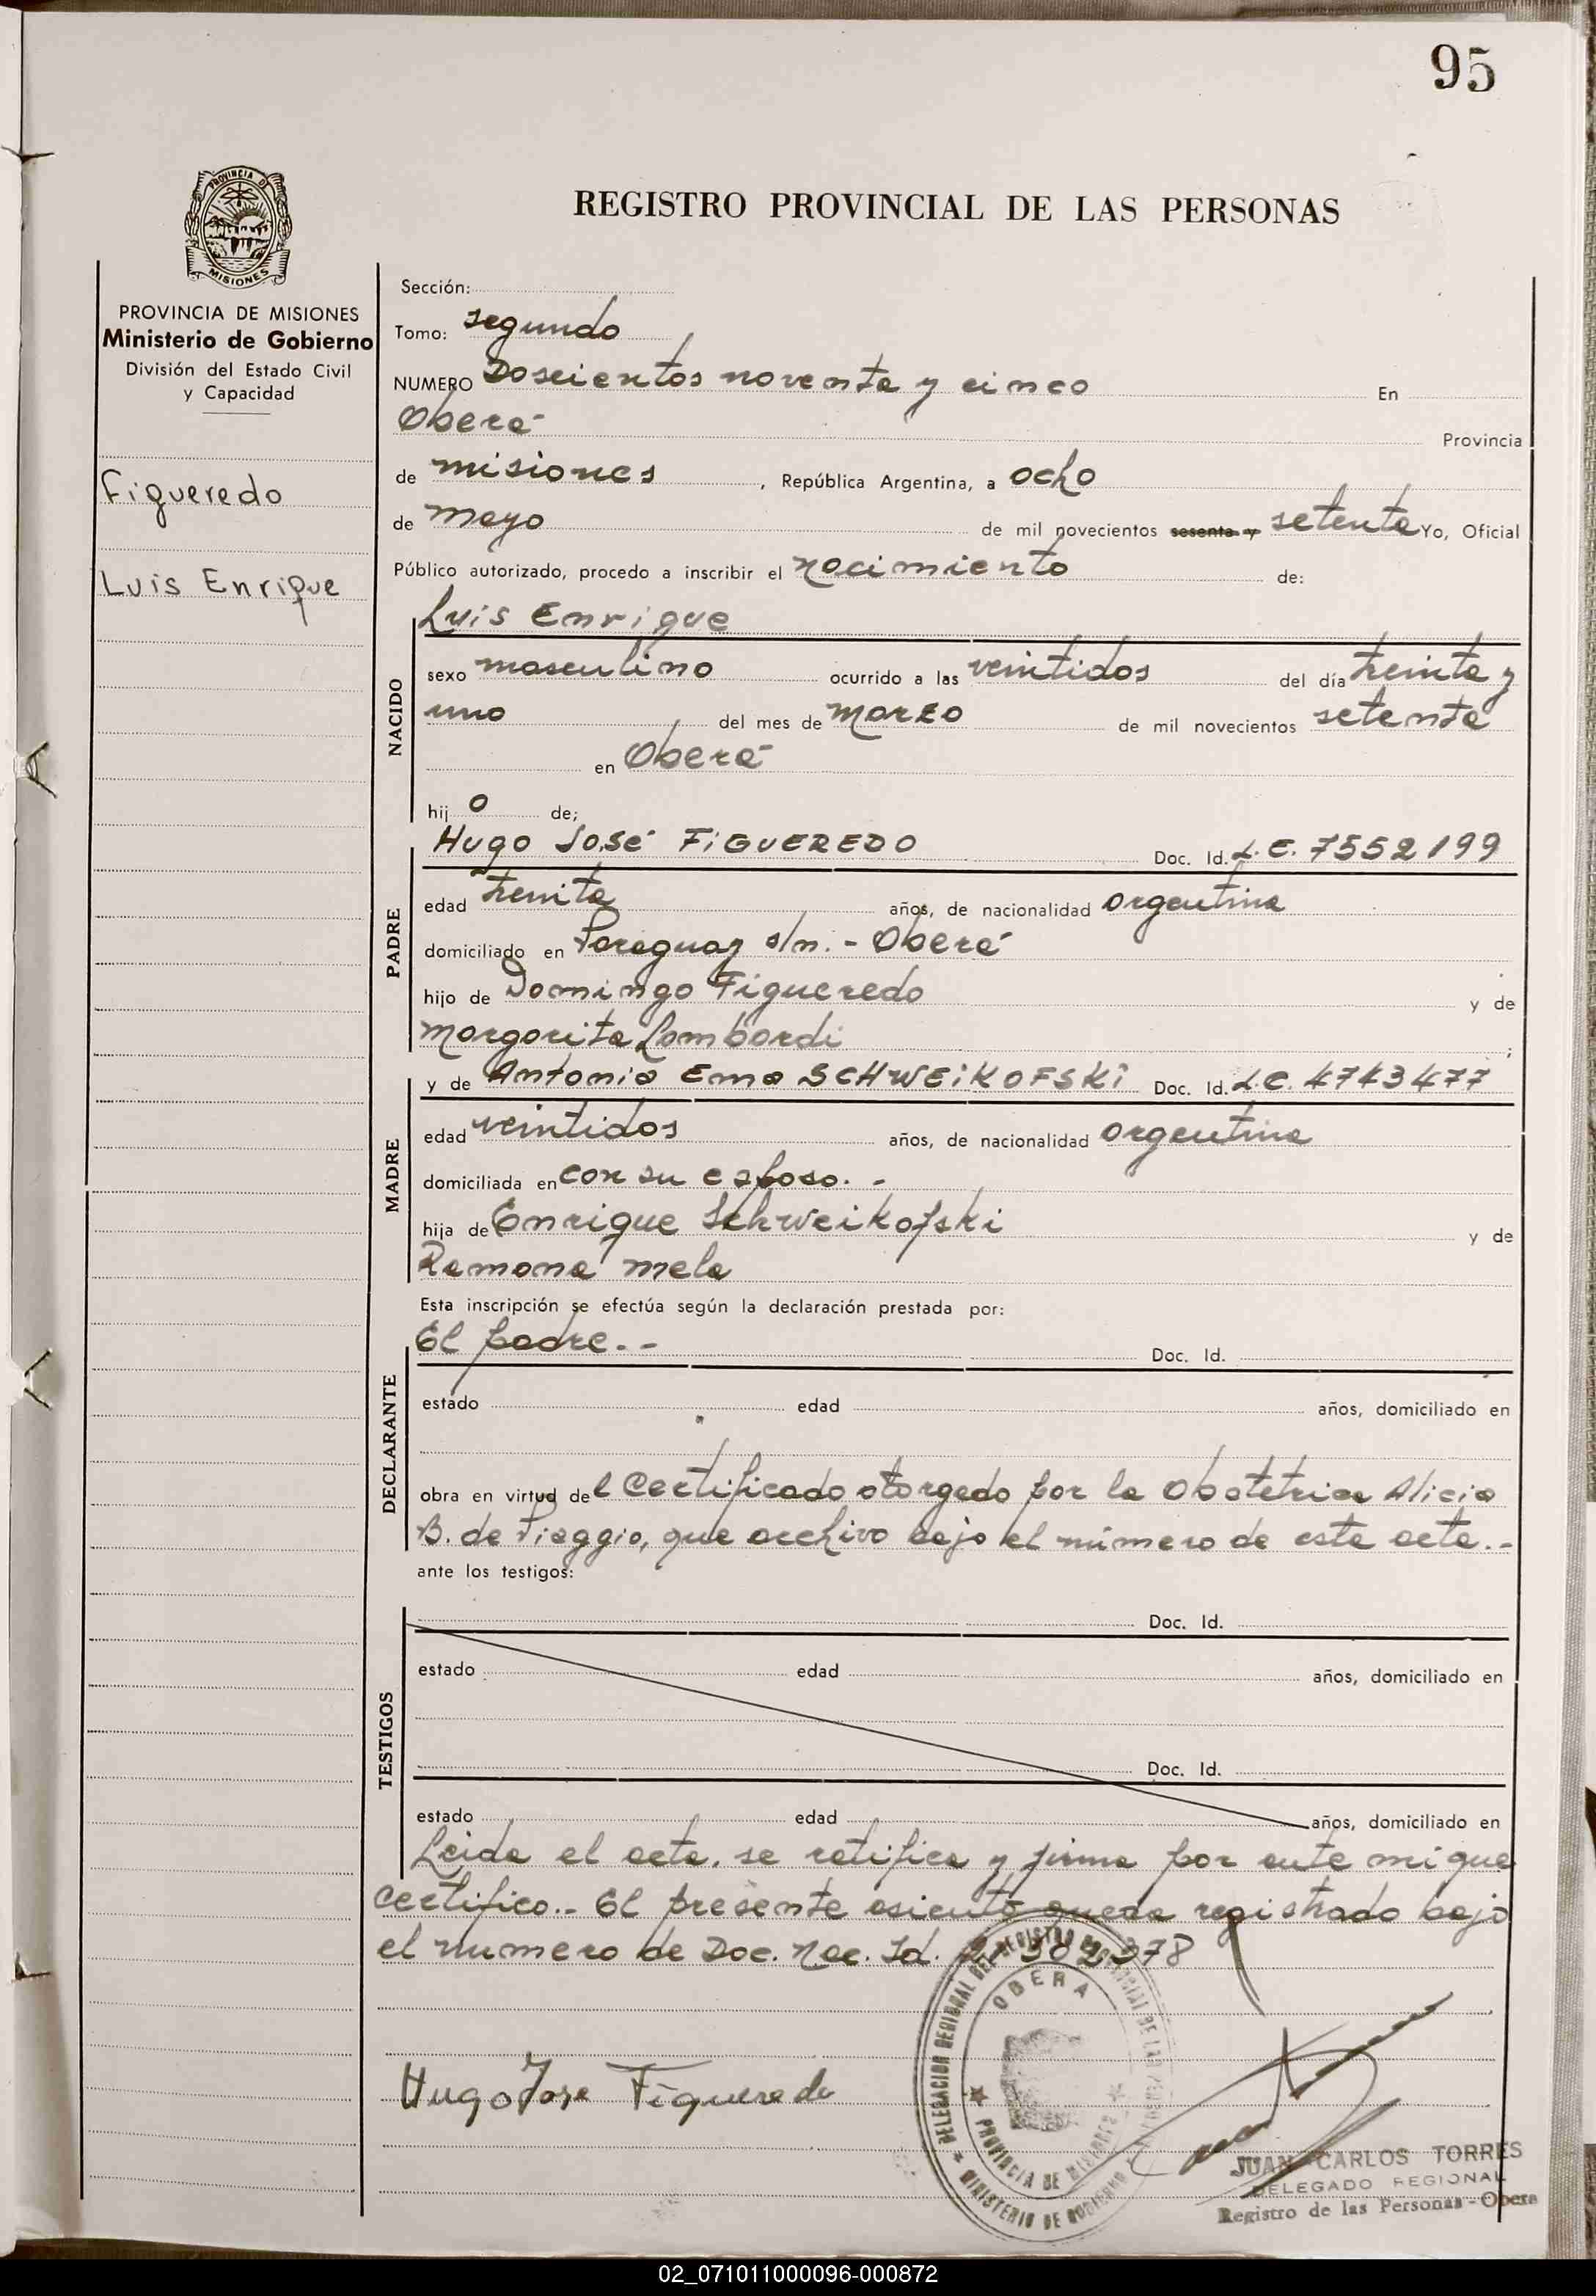 95
PROVINCIA DE
MISIONES
REGISTRO PROVINCIAL DE LAS PERSONAS
PROVINCIA DE MISIONES
Ministerio de Gobierno
División del Estado Civil
y Capacidad
Figueredo
Luis Enrique
Sección:
Tomo: segundo
NUMERO Doscientos noventa y cinco En
Oberá Provincia
de misiones, República Argentina, a ocho
de mayo de mil novecientos sesenta y setenta Yo, Oficial
Público autorizado, procedo a inscribir el nacimiento de:
Luis Enrique
NACIDO
sexo masculino ocurrido a las veintidos del día treinta y
uno del mes de marzo de mil novecientos setenta
en Oberá
hijo de;
Hugo José FIGUEREDO Doc. Id. L.E. 7552199
PADRE
edad treinta años, de nacionalidad argentina
domiciliado en Paraguay s/n. - Oberá
hijo de Domingo Figueredo y de
Margarita Lombardi;
y de Antonia Ema SCHWEIKOFSKI Doc. Id. L.C. 4743477
MADRE
edad veintidos años, de nacionalidad argentina
domiciliada en con su esposo. -
hija de Enrique Schweikofski y de
Ramona mela
Esta inscripción se efectúa según la declaración prestada por:
El padre. - Doc. Id.
DECLARANTE
estado edad años, domiciliado en
obra en virtud del Certificado otorgado por la Obstetrica Alicia
B. de Piaggio, que archivo bajo el número de esta acta. -
ante los testigos:
Doc. Id.
TESTIGOS
estado edad años, domiciliado en
Doc. Id.
estado edad años, domiciliado en
Leida el acta, se ratifica y firma por ante mi que
certifico. - El presente asiento queda registrado bajo
el numero de Doc. Nac. Id.
DELEGACION REGIONAL DEL REGISTRO PROVINCIAL DE LAS PERSONAS
OBERA
PROVINCIA DE MISIONES
MINISTERIO DE GOBIERNO
Hugo Jose Figueredo
JUAN CARLOS TORRES
DELEGADO REGIONAL
Registro de las Personas - Obera
02_071011000096-000872